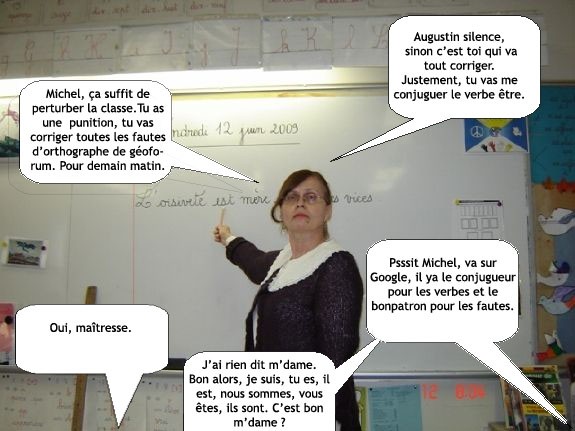 Augustin silence,
sinon c'est toi qui va
tout corriger.
Justement, tu vas me
conjuguer le verbe être.
Michel, ça suffit de
perturber la classe.Tu as
une punition, tu vas
corriger toutes les fautes
d'orthographe de géofo-
rum. Pour demain matin.
12 juin 2009
L'oisiveté est mère
vices
Psssit Michel, va sur
Google, il ya le conjugueur
pour les verbes et le
bonpatron pour les fautes.
Oui, maîtresse.
J'ai rien dit m'dame.
Bon alors, je suis, tu es, il
est, nous sommes, vous
êtes, ils sont. C'est bon
m'dame ?
12 8:04